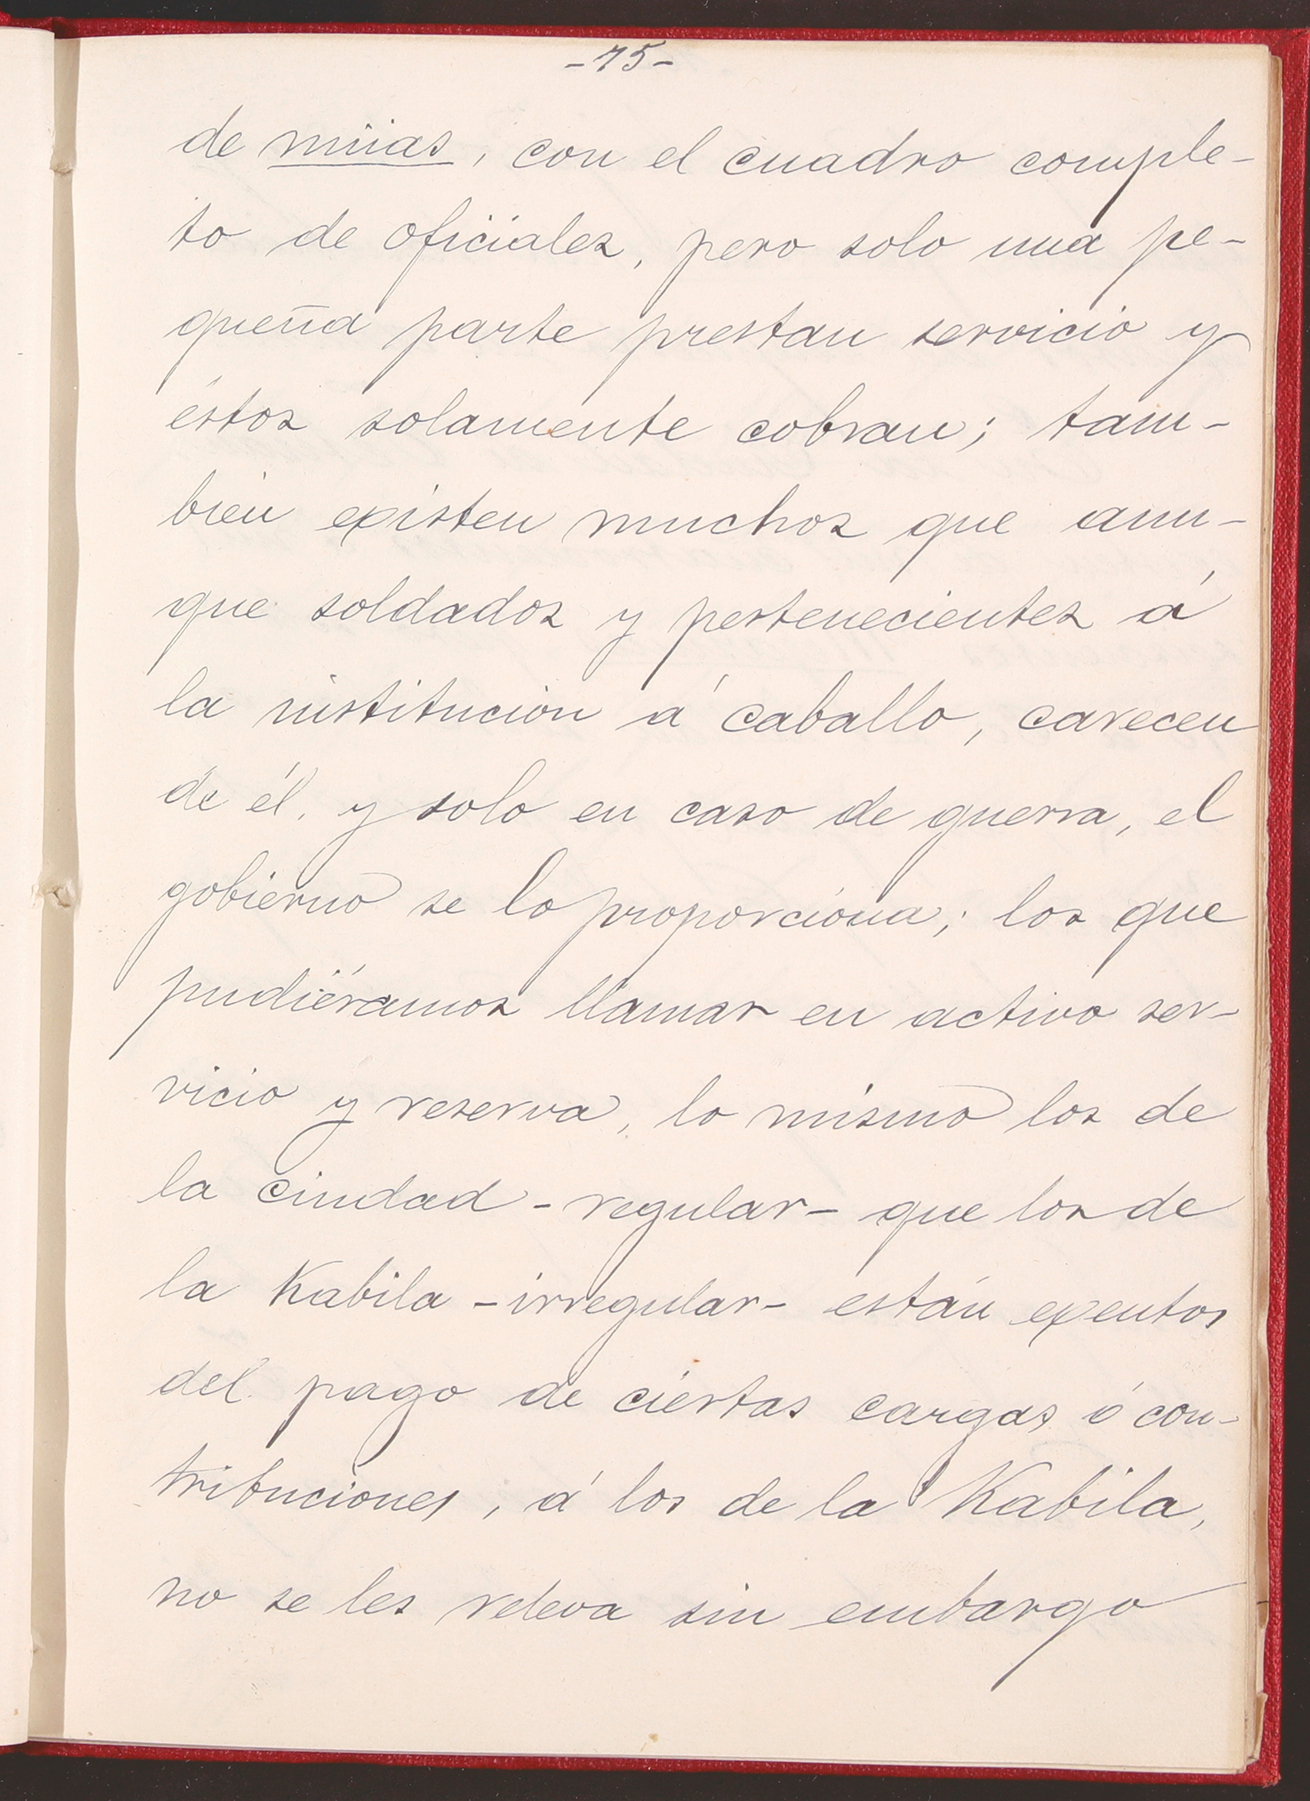 -75-
de miias, con el cuadro comple-
to de oficiales, pero solo una pe-
queña parte prestan servicio y
éstos solamente cobran; tam-
bién existen muchos que aun-
que soldados y pertenecientes á
la institución á caballo, carecen
de él, y solo en caso de guerra, el
gobierno se lo proporciona; los que
pudiéramos llamar en activo ser-
vicio y reserva, lo mismo los de
la ciudad -regular- que los de
la Kabila -irregular- están exentos
del pago de ciertas cargas ó con-
tribuciones, á los de la Kabila,
no se les releva sin embargo